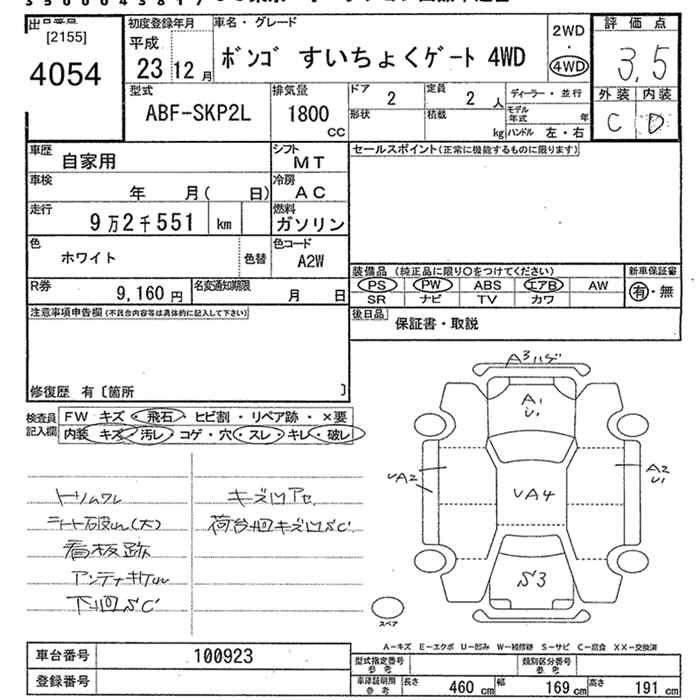 出品番号
[2155]
4054
初度登録年月
平成
23 12 月
車名・グレード
ボンゴ すいちょくゲート 4WD
2WD
・
4WD
評価点
3,5
外装 内装
C D
型式
ABF-SKP2L
排気量
1800
CC
ドア
2
定員
2 人
形状
積載
kg
ディーラー・並行
モデル
年式 年
ハンドル 左・右
車歴
自家用
シフト
MT
車検
年 月( 日)
冷房
AC
走行
9万2千551 km
燃料
ガソリン
色
ホワイト
色替
色コード
A2W
R券
9,160 円
名変通知期限
月 日
セールスポイント(正常に機能するものに限ります)
装備品 (純正品に限り○をつけてください)
PS PW ABS エアB AW
SR ナビ TV カワ
新車保証書
有・無
後日品
保証書・取説
注意事項申告欄(不具合内容等は具体的に記入して下さい)
修復歴 有〔箇所 〕
検査員
記入欄
FW キズ・飛石・ヒビ割・リペア跡・×要
内装 キズ・汚レ・コゲ・穴・スレ・キレ・破レ
トリムワレ
シート破れ(大)
看板跡
アンテナキレ
下回SC
キズ凹アセ
荷台回キズ凹SC
A3ハゲ
A1
U1
UA2
UA4
A2
U1
S3
スペア
A-キズ E-エクボ U-凹み W-補修跡 S-サビ C-腐食 XX-交換済
車台番号
100923
登録番号
型式指定番号
参考
類別区分番号
参考
車庫証明用
参考
長さ 460 cm 幅 169 cm 高さ 191 cm